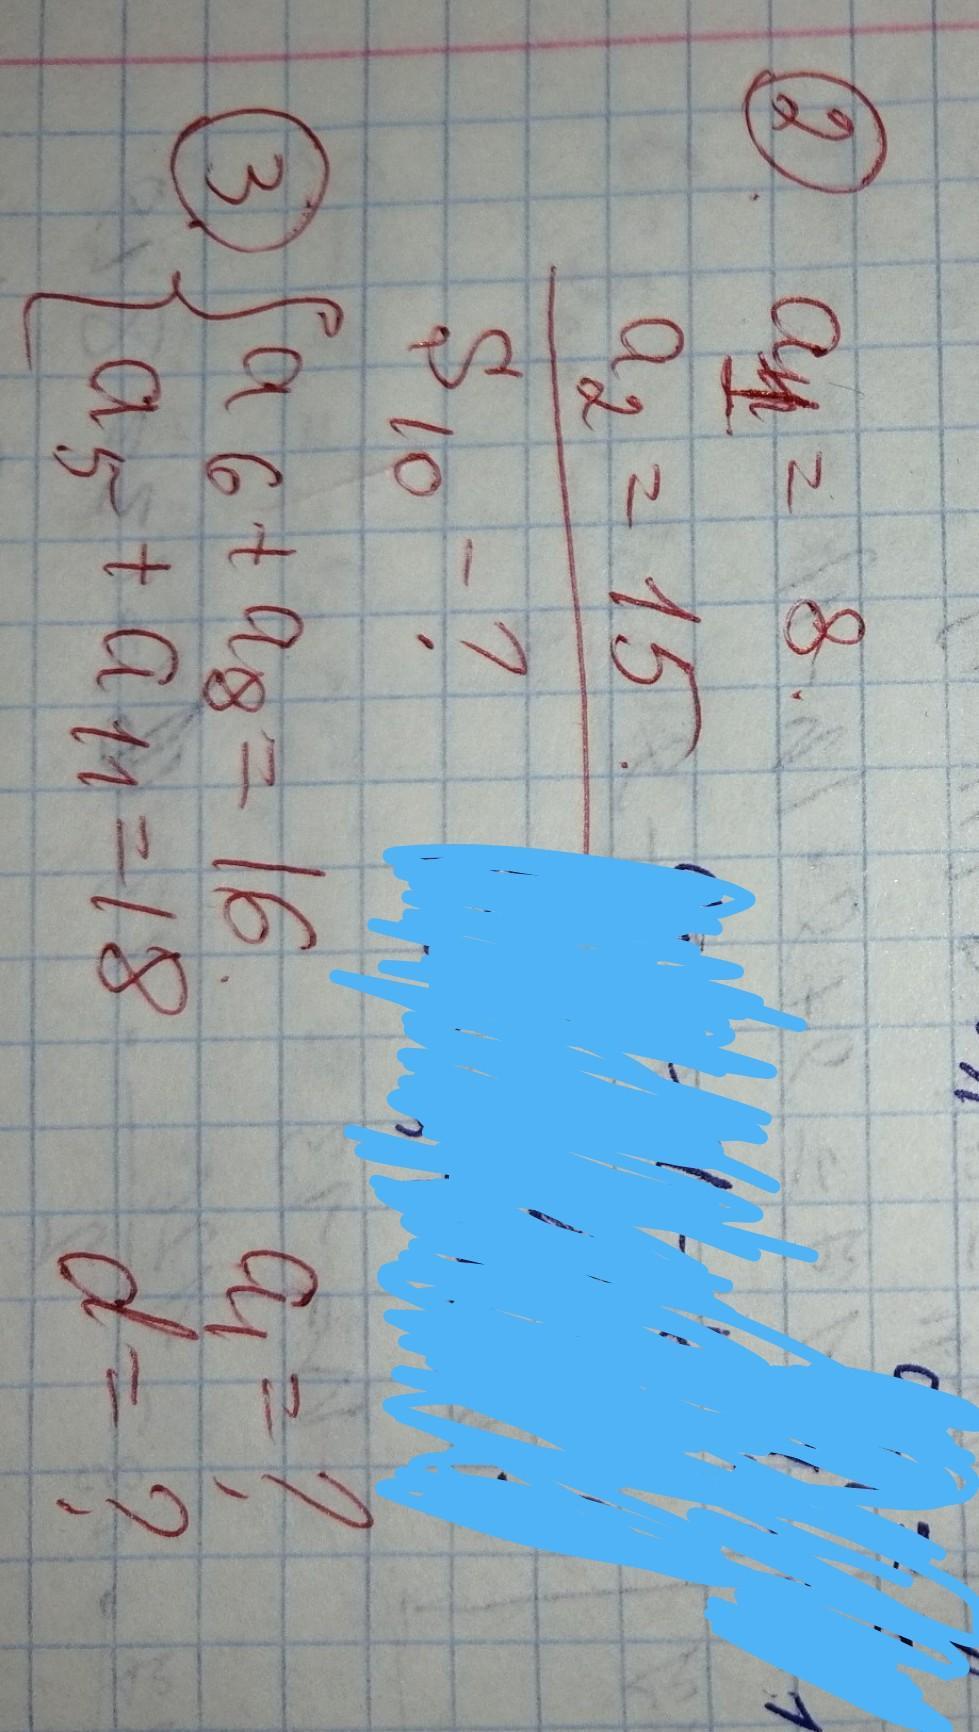 2
a1 = 8.
a2 = 15.
S10 - ?
3 { a6 + a8 = 16. a1 = ?
a5 + a11 = 18 d = ?